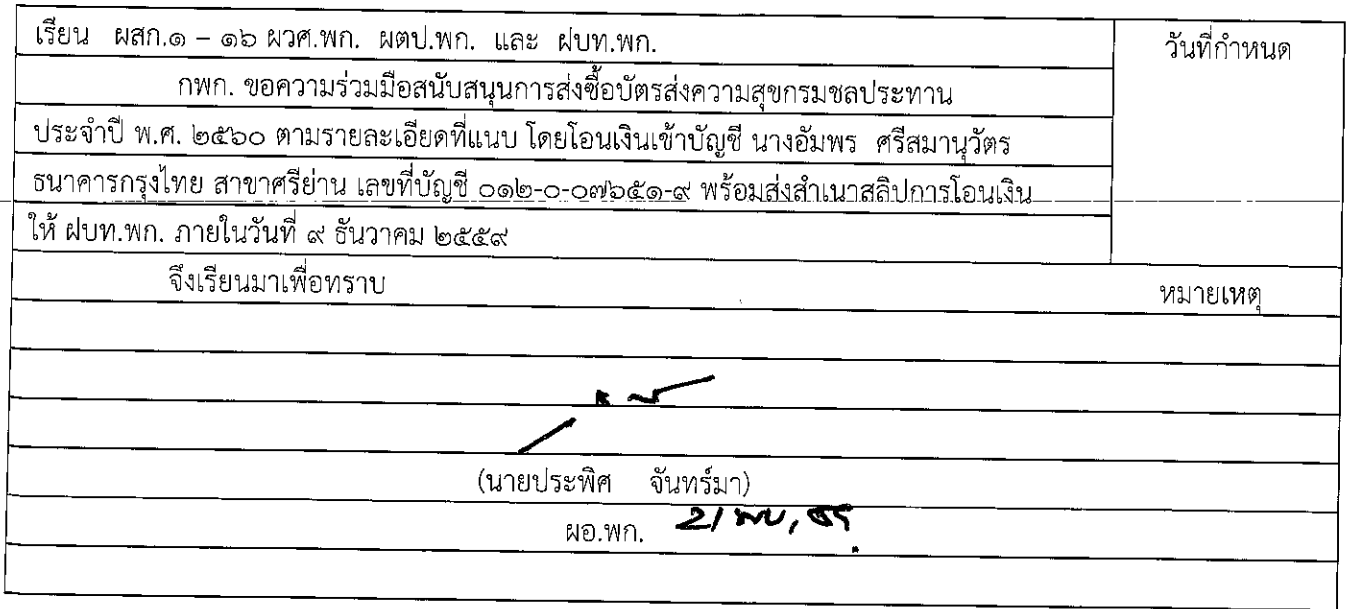 เรียน ผสก.๑ – ๑๖ ผวศ.พก. ผตป.พก. และ ฝบท.พก.
วันที่กำหนด
กพก. ขอความร่วมมือสนับสนุนการส่งซื้อบัตรส่งความสุขกรมชลประทาน
ประจำปี พ.ศ. ๒๕๖๐ ตามรายละเอียดที่แนบ โดยโอนเงินเข้าบัญชี นางอัมพร ศรีสมานุวัตร
ธนาคารกรุงไทย สาขาศรีย่าน เลขที่บัญชี ๐๑๒-๐-๐๗๖๕๑-๙ พร้อมส่งสำเนาสลิปการโอนเงิน
ให้ ฝบท.พก. ภายในวันที่ ๙ ธันวาคม ๒๕๕๙
จึงเรียนมาเพื่อทราบ
หมายเหตุ
(นายประพิศ จันทร์มา)
ผอ.พก. 21 พย, ๕๙